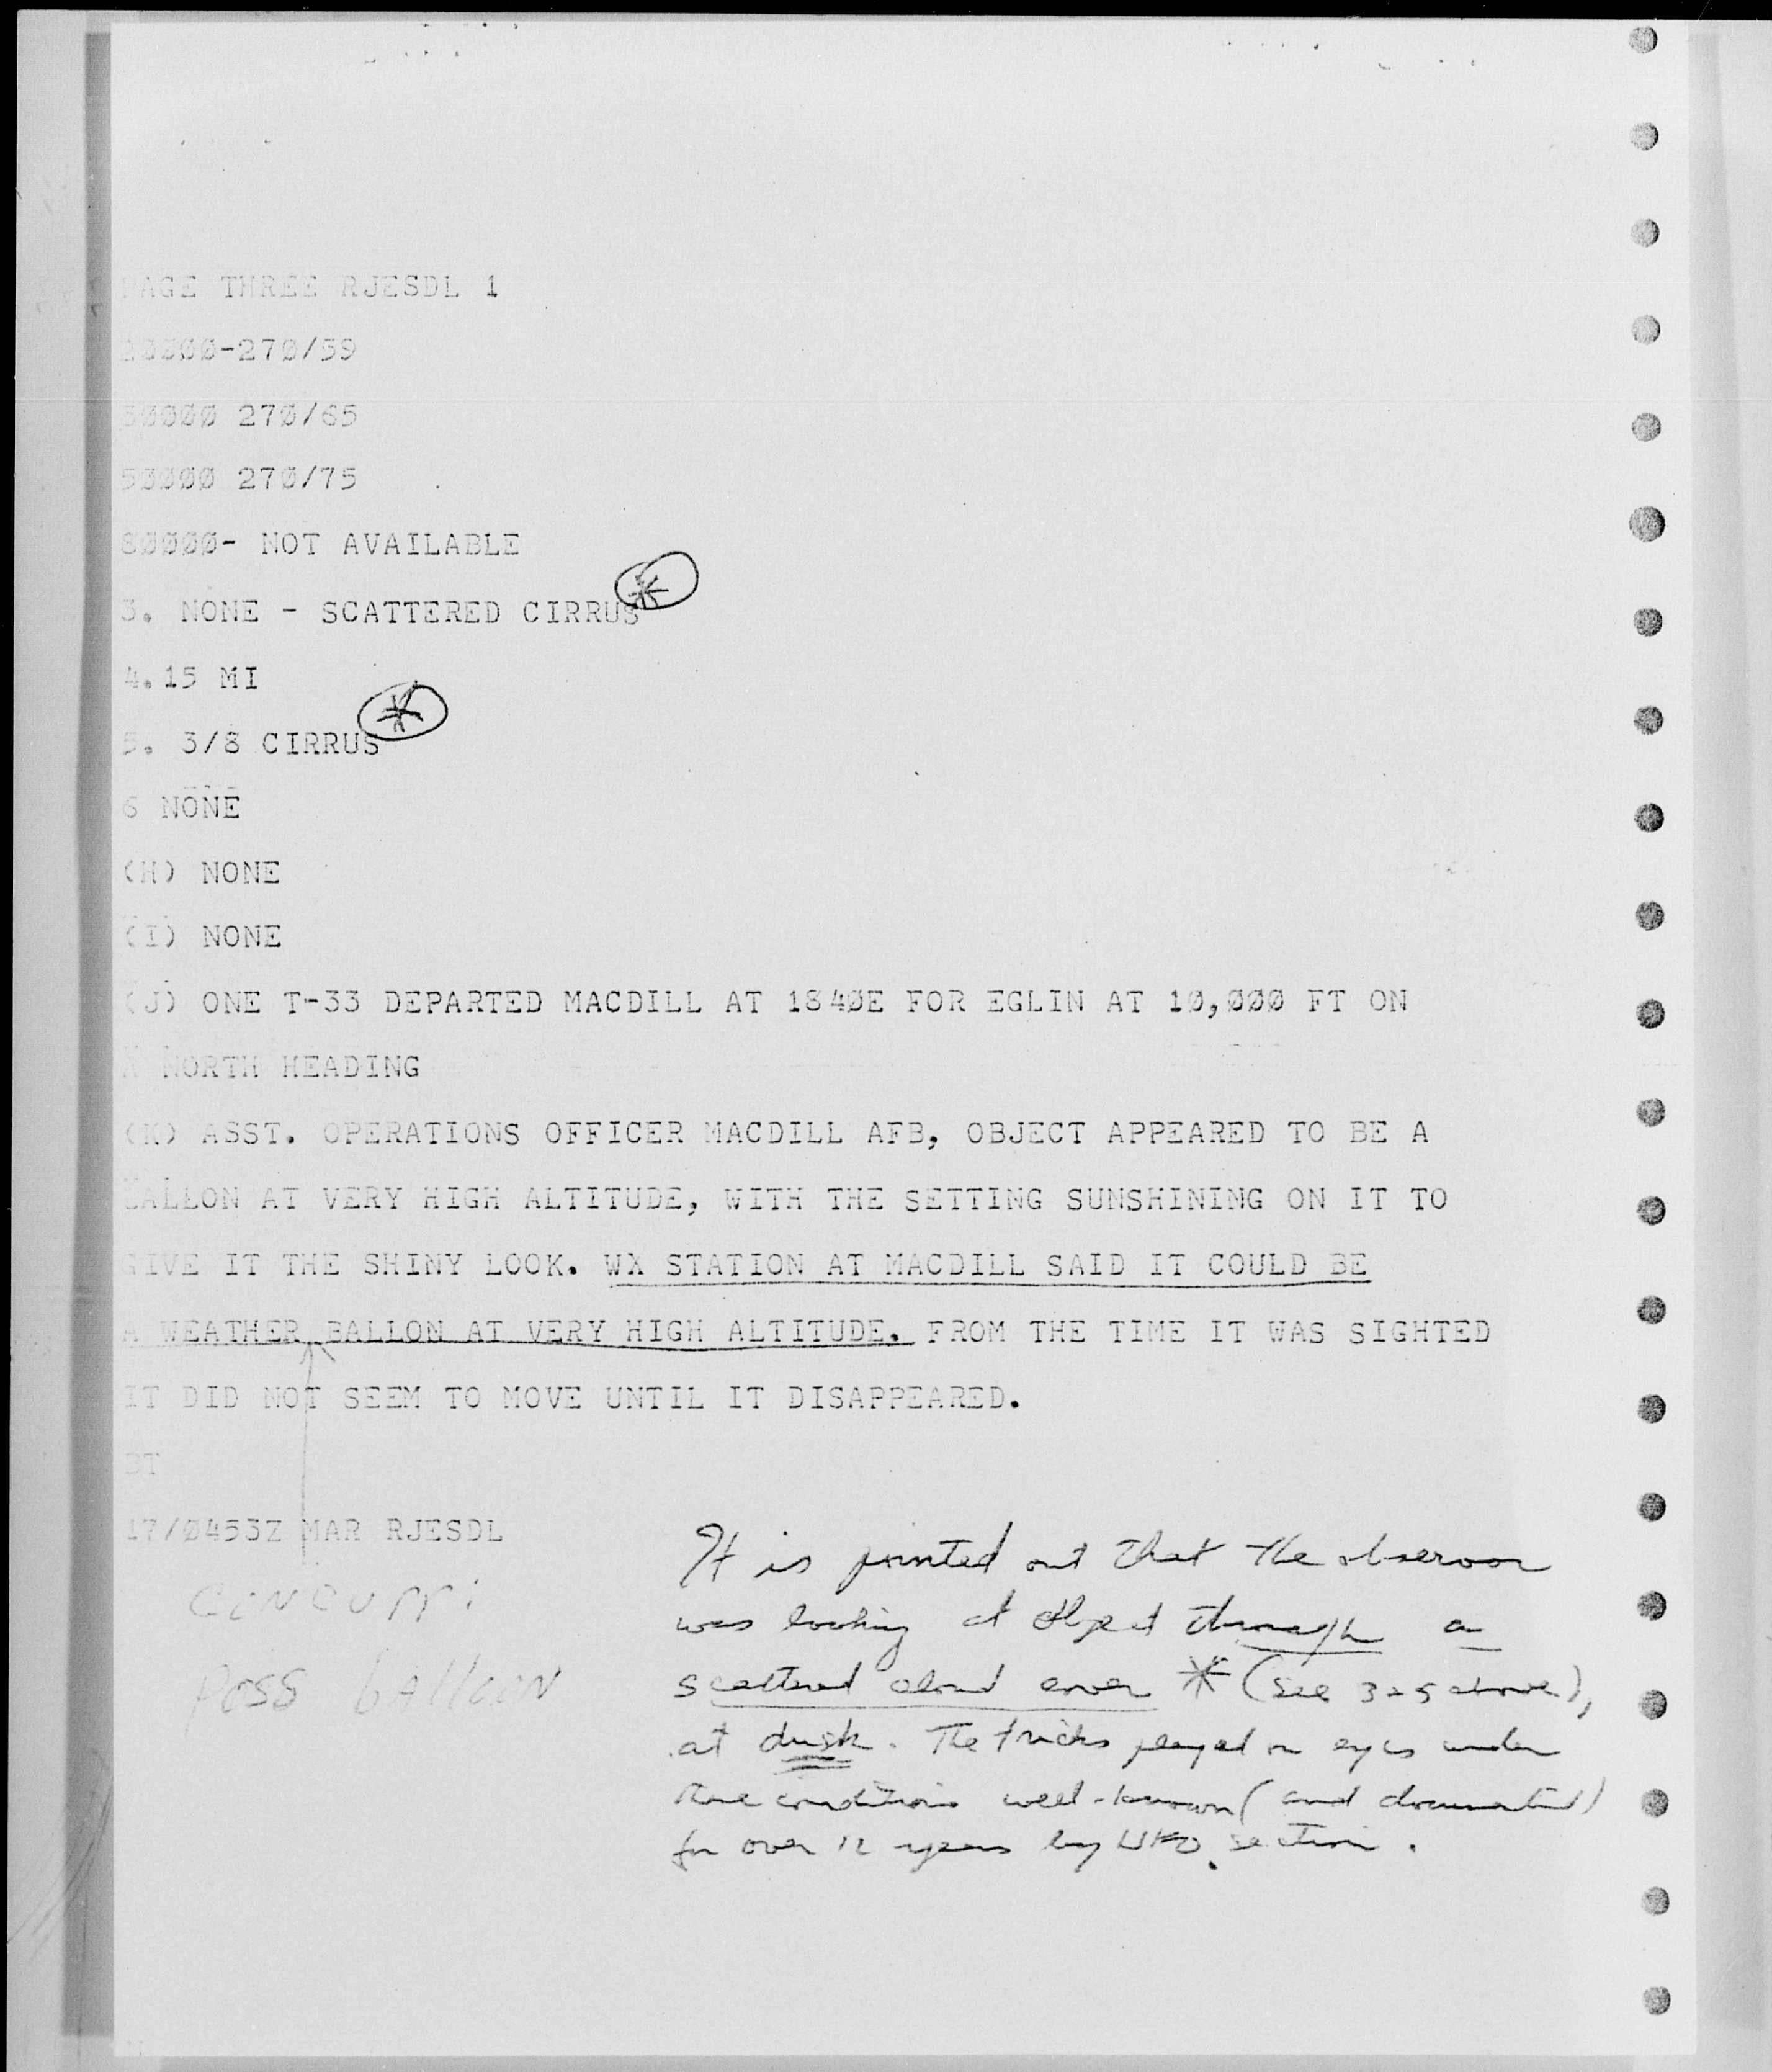 PAGE THREE RJESDL 1
20000-270/59
30000 270/65
50000 270/75
80000- NOT AVAILABLE
3. NONE - SCATTERED CIRRUS *
4.15 MI
5. 3/8 CIRRUS *
6 NONE
(H) NONE
(I) NONE
(J) ONE T-33 DEPARTED MACDILL AT 1840E FOR EGLIN AT 10,000 FT ON
A NORTH HEADING
(K) ASST. OPERATIONS OFFICER MACDILL AFB, OBJECT APPEARED TO BE A
BALLON AT VERY HIGH ALTITUDE, WITH THE SETTING SUNSHINING ON IT TO
GIVE IT THE SHINY LOOK. WX STATION AT MACDILL SAID IT COULD BE
A WEATHER BALLON AT VERY HIGH ALTITUDE. FROM THE TIME IT WAS SIGHTED
IT DID NOT SEEM TO MOVE UNTIL IT DISAPPEARED.
BT
17/0453Z MAR RJESDL
concurr:
poss balloon
It is pointed out that the observor
was looking at object through a
scattered cloud cover * (see 3 & 5 above),
at dusk. The tricks played on eyes under
these conditions well-known (and documented)
for over 12 years by UFO section.